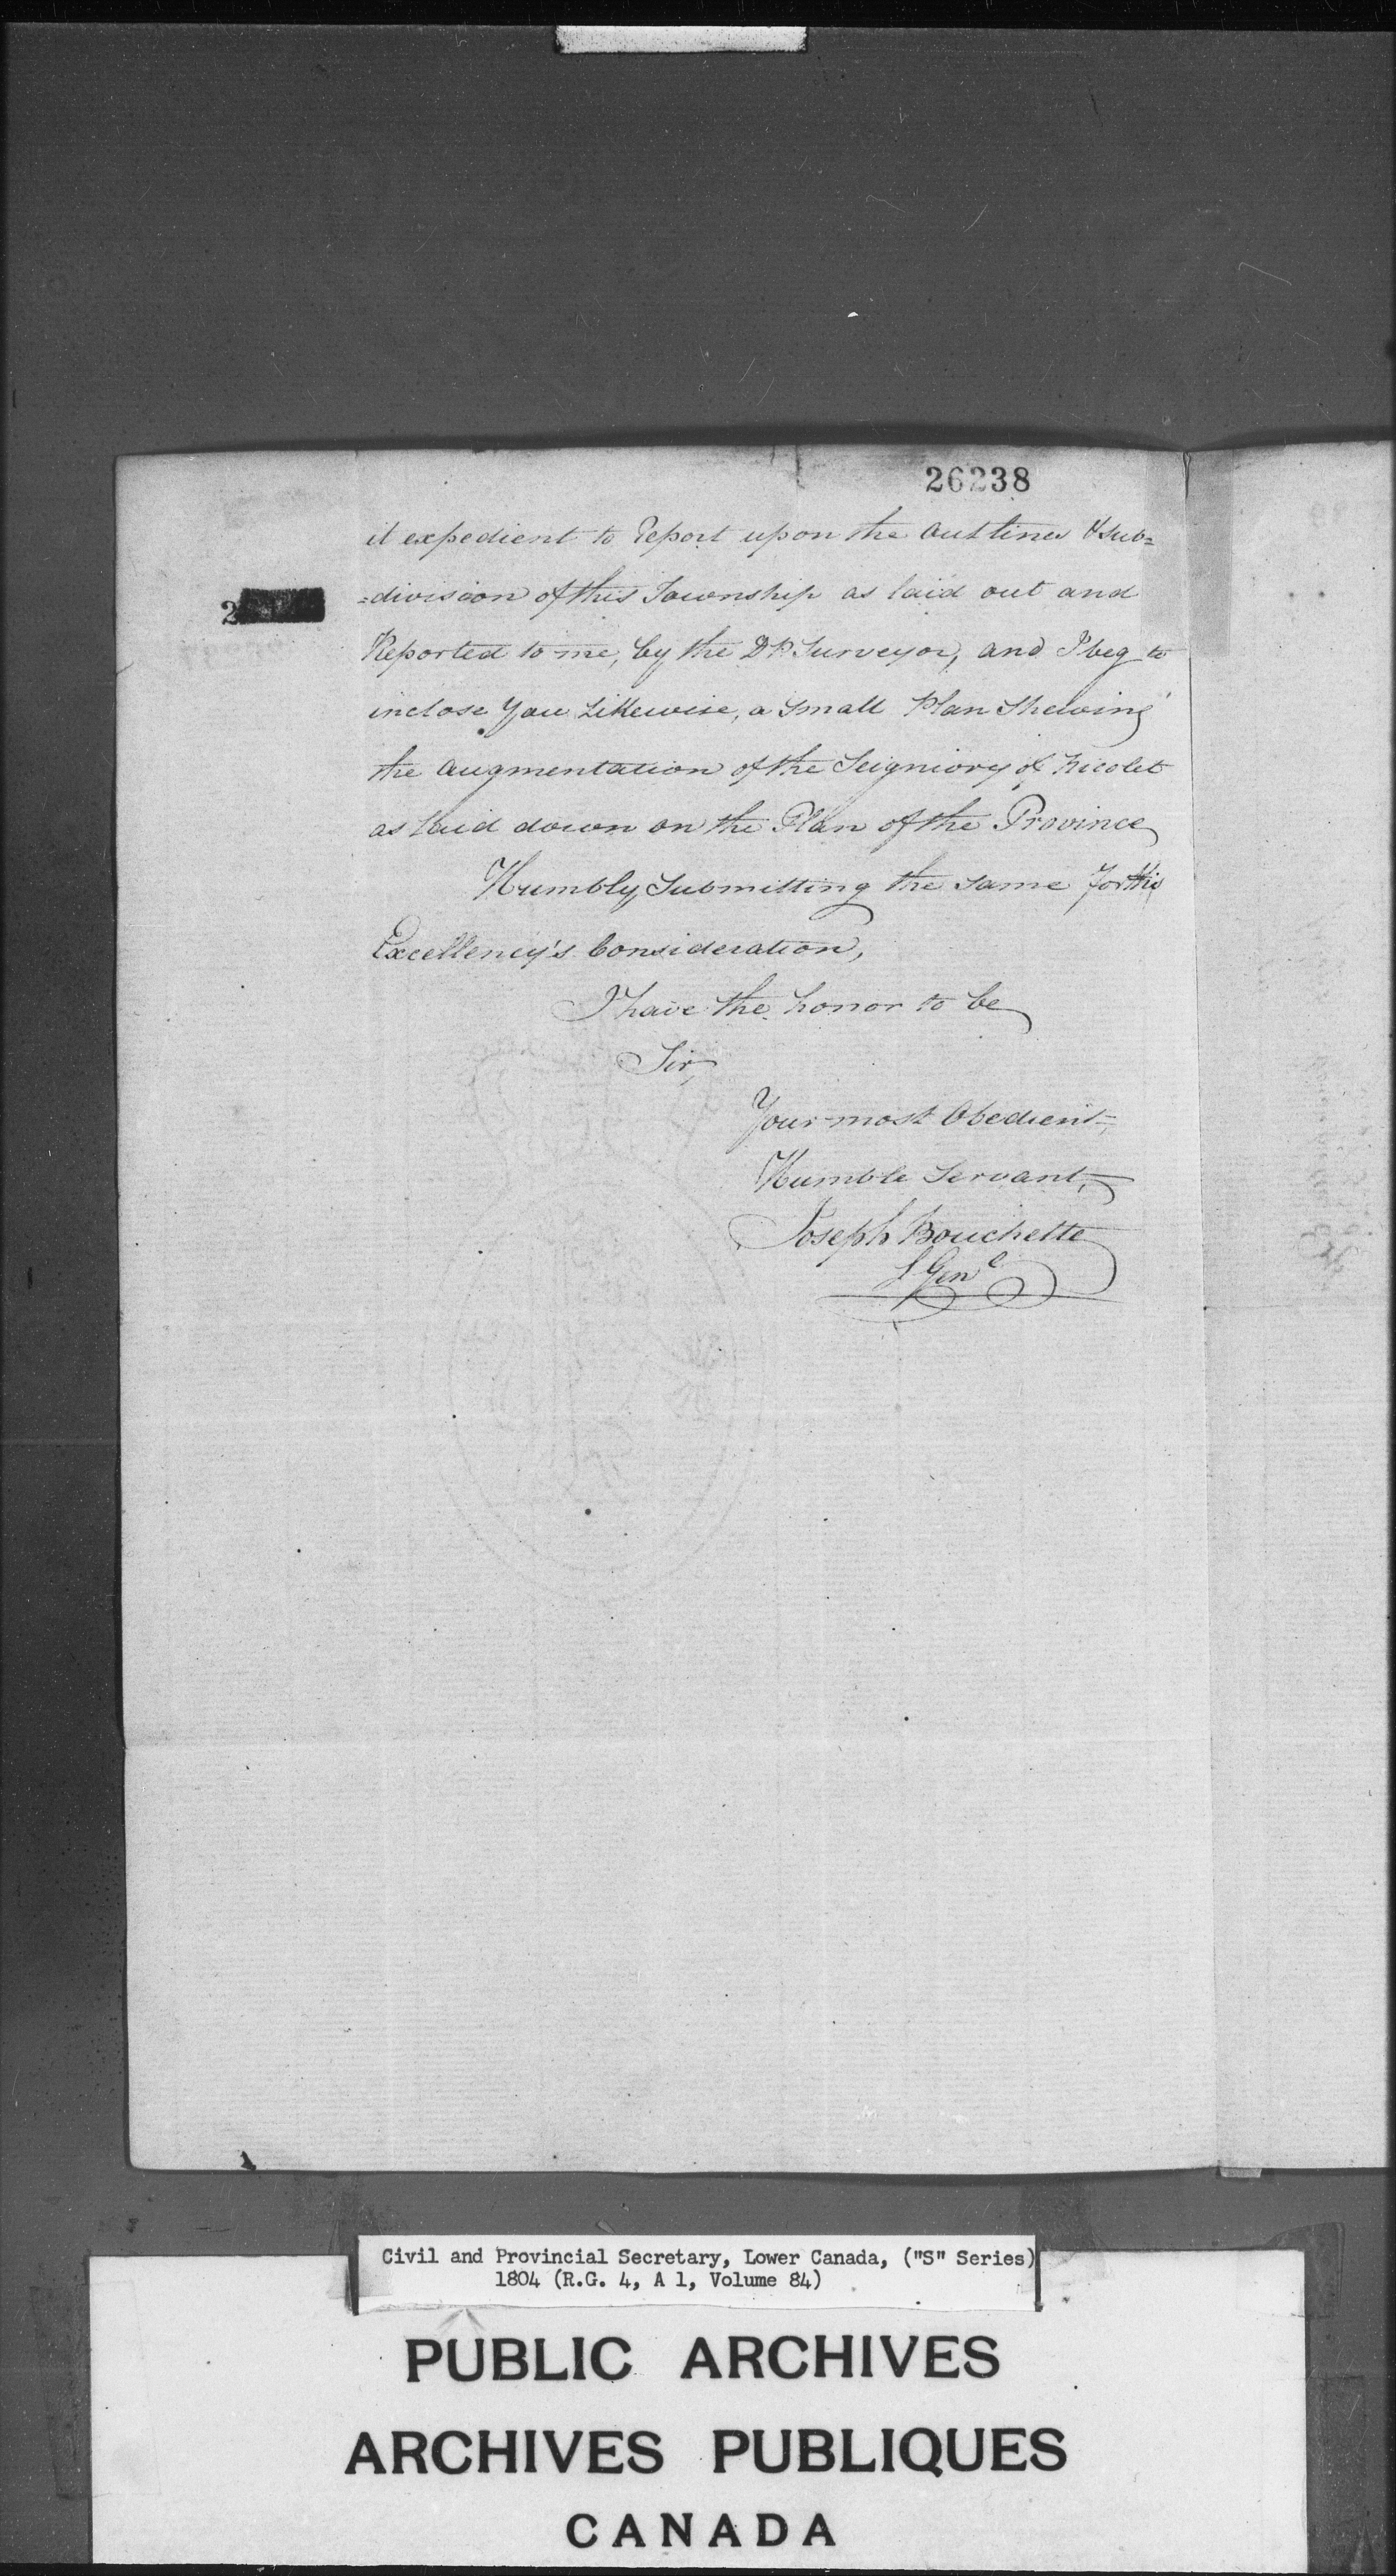 26238
it expedient to Report upon the Outlines & Sub=
2
=division of this Township as laid out and
Reported to me, by the DP. Surveyor, and I beg to
inclose You Likewise, a small Plan Shewing
the augmentation of the Seigniory of Nicolet
as laid down on the Plan of the Province
Humbly Submitting the same for His
Excellency's Consideration,
I have the honor to be
Sir,
Your most Obedient,
Humble Servant,
Joseph Bouchette
S Genl
Civil and Provincial Secretary, Lower Canada, ("S" Series)
1804 (R.G. 4, A 1, Volume 84)
PUBLIC ARCHIVES
ARCHIVES PUBLIQUES
CANADA